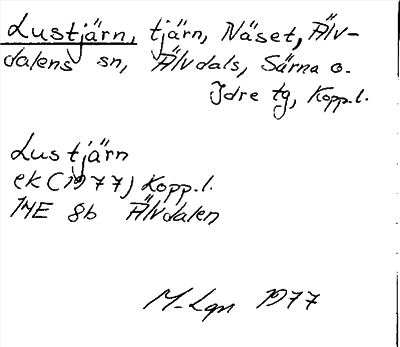 Lustjärn, tjärn, Näset, Älv-
dalens sn, Älvdals, Särna o.
Idre tg, Kopp.l.
Lustjärn
ek (1977) Kopp.l.
14E 8b Älvdalen
M-Lgn 1977